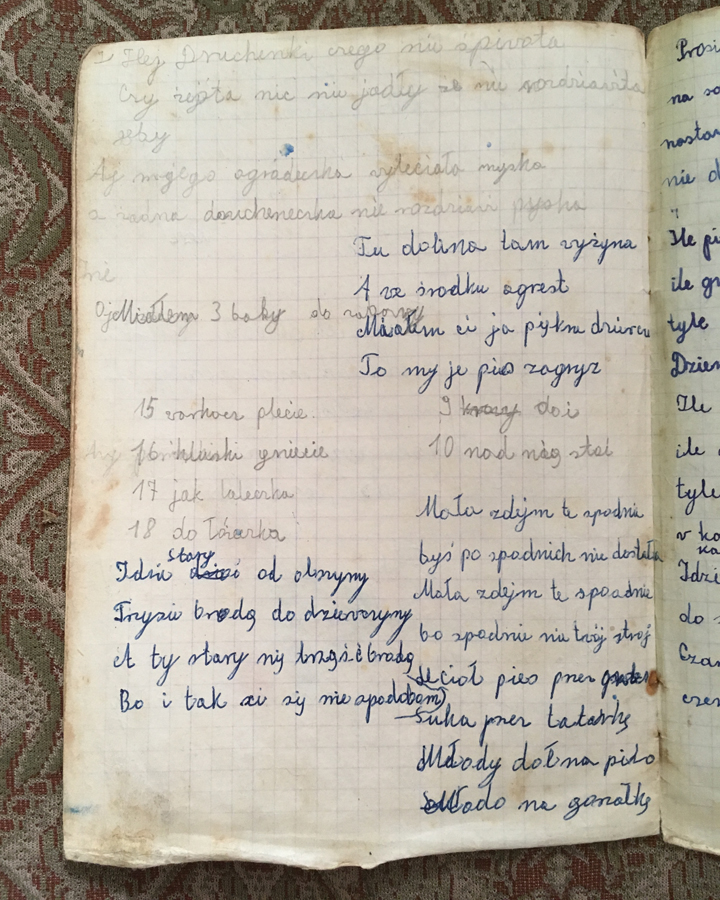 Hej Druchenki czego nie śpiwota
Czy zejśta nic nie jadły ze nie rozdziawita
zęby
Aj mojego ogródecka wyleciała myska
a żadna doucheneczka nie rozdziawi pyska
Tu dolina tam vyżyna
A ve środku agrest
Miałem ci ja piękn dziewcu
To my je pies zagryz
Oj Miałem 3 baby do
15 varkocz plecie.
16 kluski gniecie
17 jak laleczka
18 do łóżeczka
9 krozy doi
10 nad nóg stoi
Idzie stary dzia od olszyny
Trzysie brodą do dzieverzyny
A ty stary nij trzęś ś brodą
Bo i tak zi sij nie spodobom)
Mała zdejm te spodnie
byś po spodnich nie dostała
Mała zdejm te spoodnie
bo spodnie nie tvój stroj
Leciał pies przez
Suka przez tatarkę
Młody doł na pivo
Młado na gorzałkę
Prosi
na
nostar
nie d
"
Ile pi
ile gr
tyle
Dzien
Ile
ile
tyle
v ko
ka
Idzi
do
Czar
czer